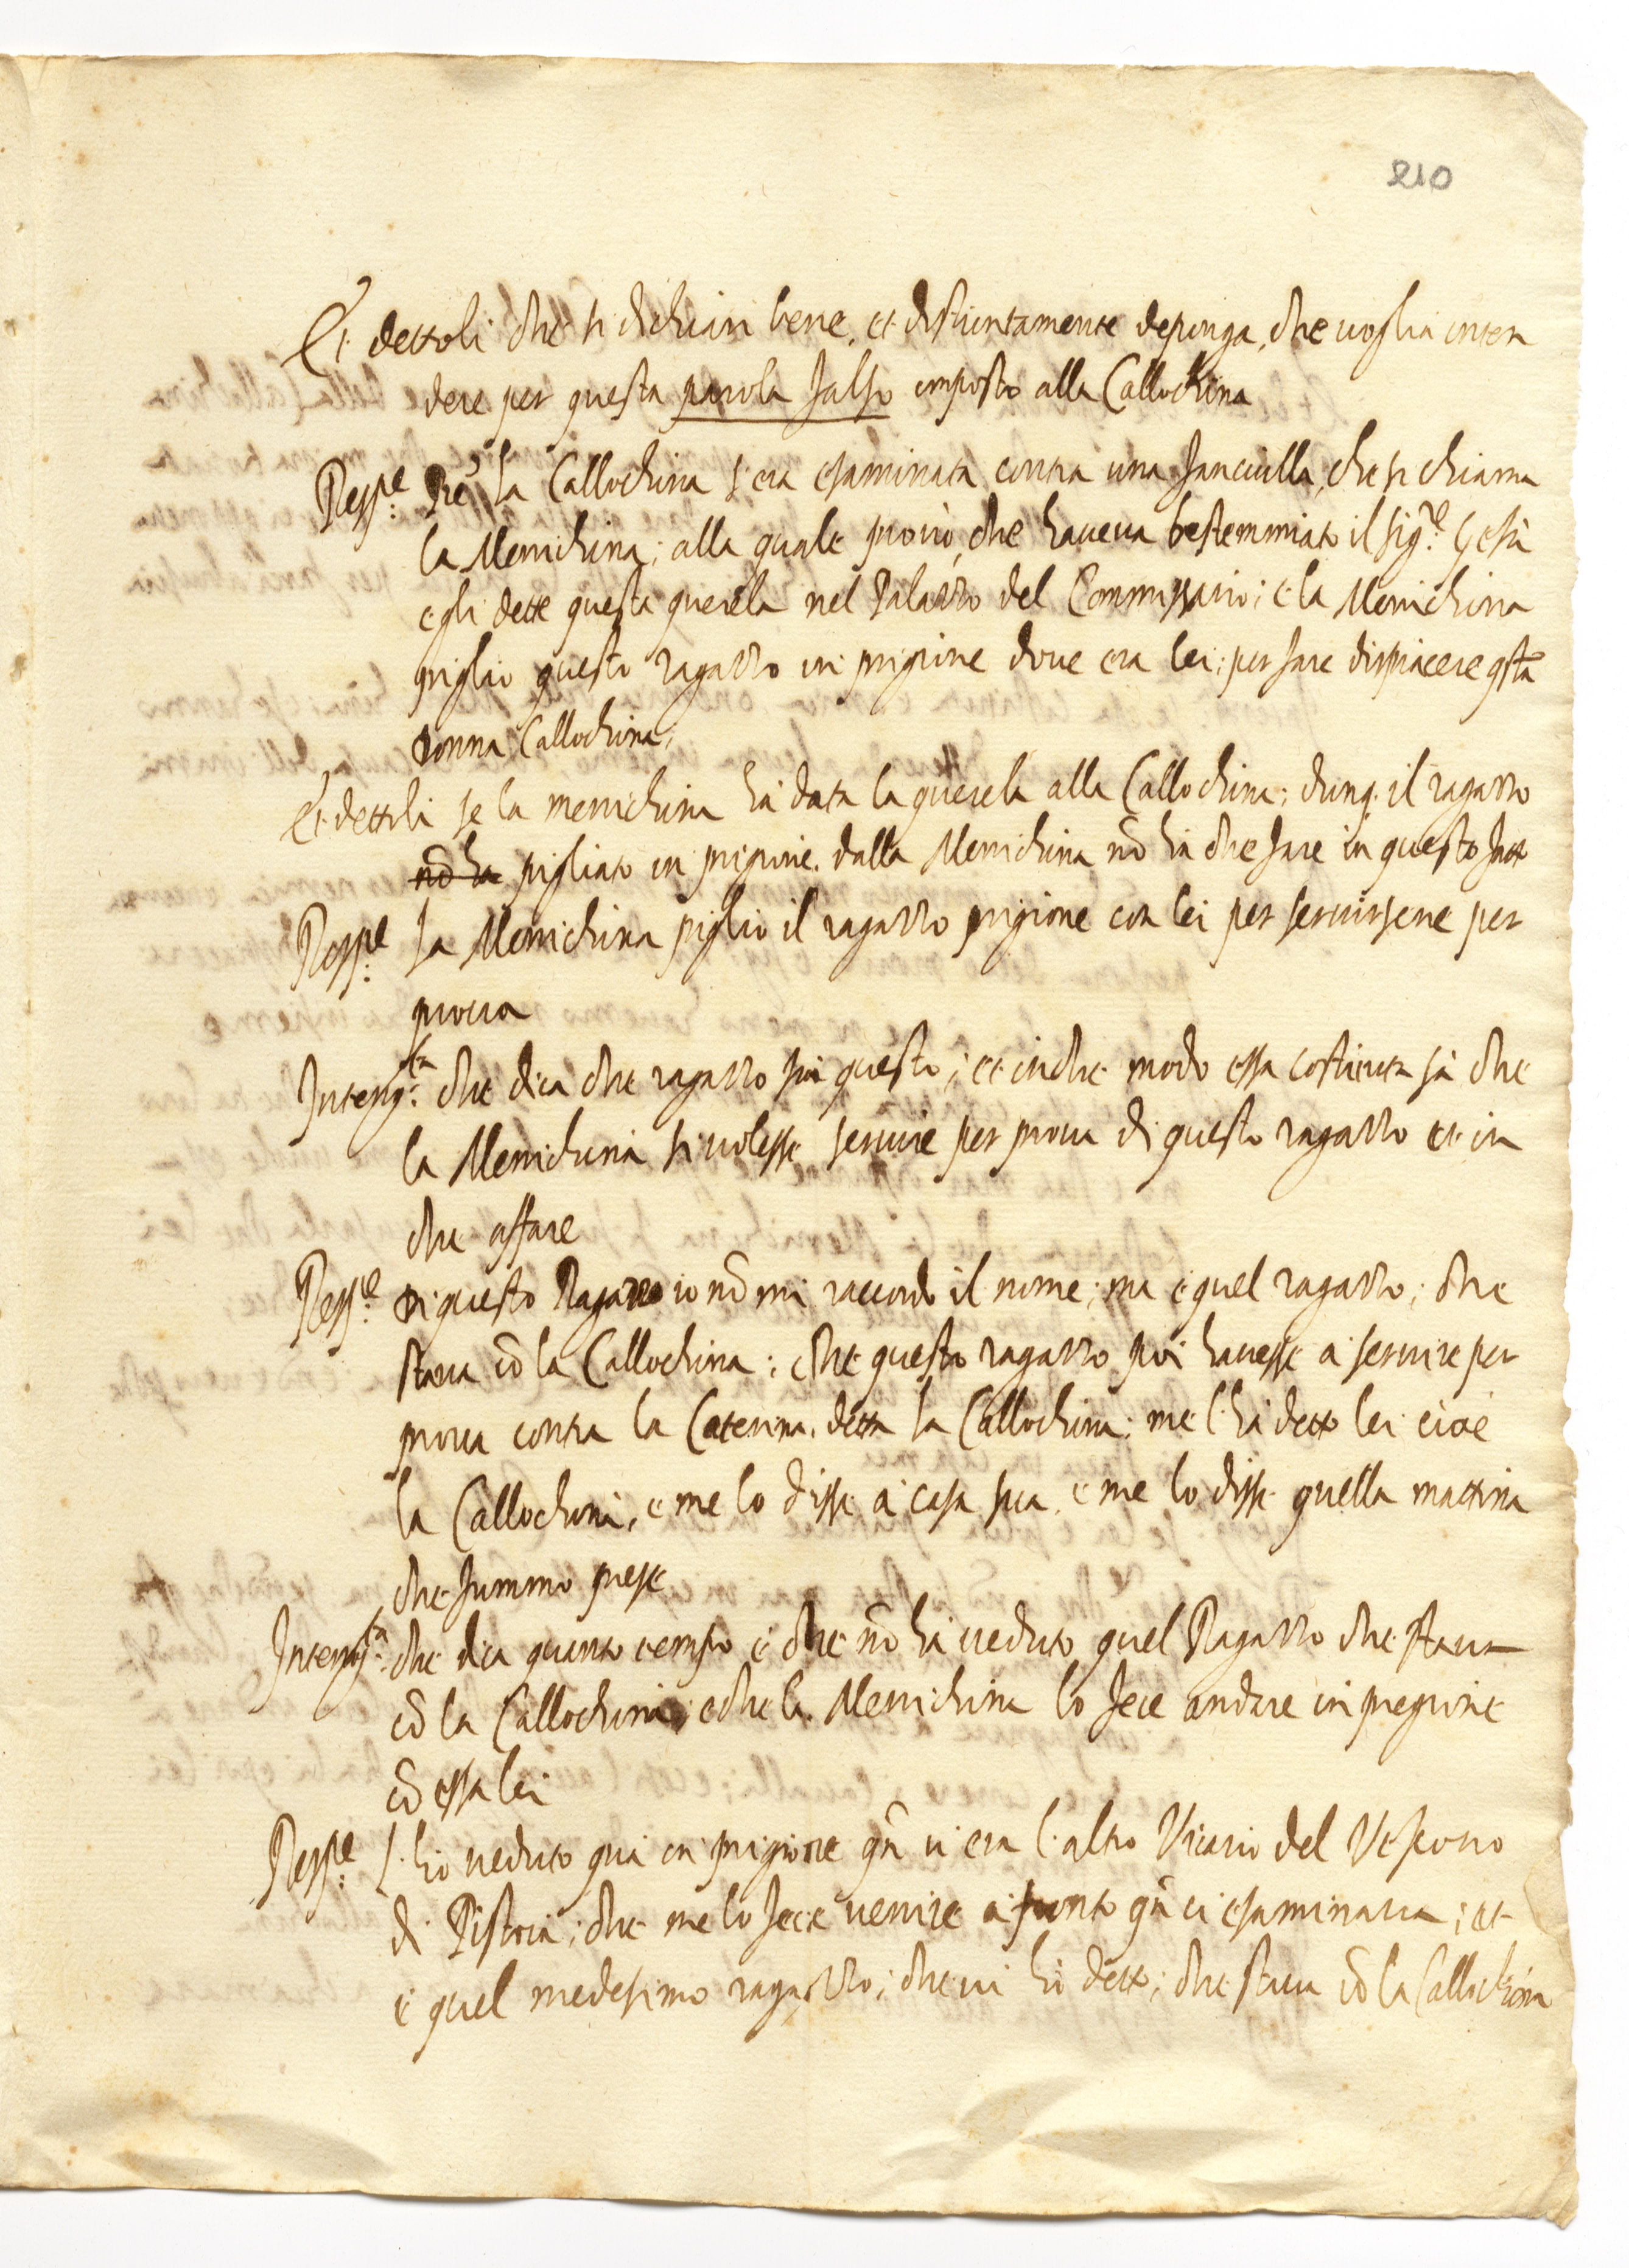 210
Et dettoli che si dichiari bene, et distintamente deponga, che voglia inten
dere per questa parola falso imposto alla Callochina
Resp.e Che la Callochina s'era esaminata contra una fanciulla, che si chiama
la Menichina; alla quale provò, che haveva bestemmiato il Sig.re Gesù
e gli dette questa querela nel Palazzo del Commissario; e la Menichina
pigliò questo ragazzo in prigione dove era lei; per fare dispiacere q.sta
Donna Callochina;
Et dettoli se la menichina hà data la querela alla Callochina; dunq. il ragazzo
nō ha pigliato in prigione. dalla Menichina nō hà che fare in questo fatto
Resp.e La Menichina pigliò il ragazzo prigione con lei per servirsene per
prova
Interrog.ta che dica che ragazzo sia questo; et in che modo essa costituta sà che
la Menichina si volesse servire per prova di questo ragazzo et in
che affare
Resp.e Di questo Ragazzo io nō mi raccordo il nome; ma è quel ragazzo; che
stava cō la Callochina; e che questo ragazzo poi havesse à servire per
prova contra la Caterina. detta la Callochina; me l'hà detto lei cioè
la Callochina, e me lo disse à casa sua, e me lo disse quella mattina
che fummo prese
Interrog.ta che dica quanto tempo è che nō hà veduto quel Ragazzo che stava
cō la Callochina; e che la Menichina lo fece andare in pregione
cō essa lei
Resp.e L'hò veduto quà in prigione qn̄ vi era l'altro Vicario del Vescovo
di Pistoia; che me lo fece venire à fronto qn̄ ci esaminava; et
è quel medesimo ragazzo; che vi hò detto; che stava cō la Callochina